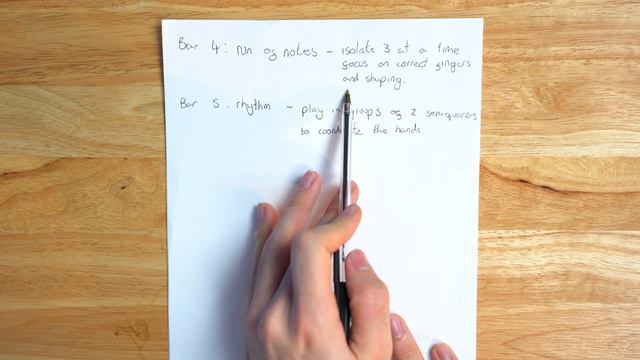 Bar 4: run of notes - isolate 3 at a time
focus on correct fingers
and shaping.
Bar 5: rhythm - play in groups of 2 semiquavers
to coordinate the hands.